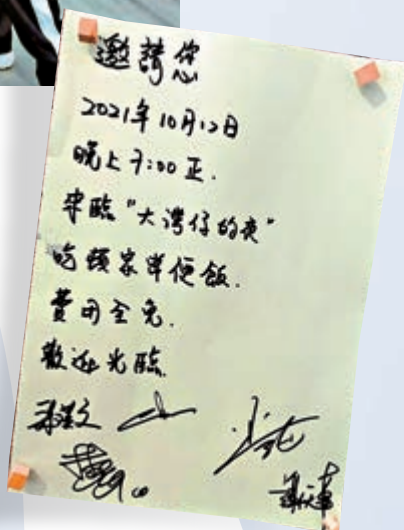 邀請您
2021年10月12日
晚上7:00正.
來臨“大灣仔的夜”
吃頓家常便飯.
費用全免.
歡迎光臨